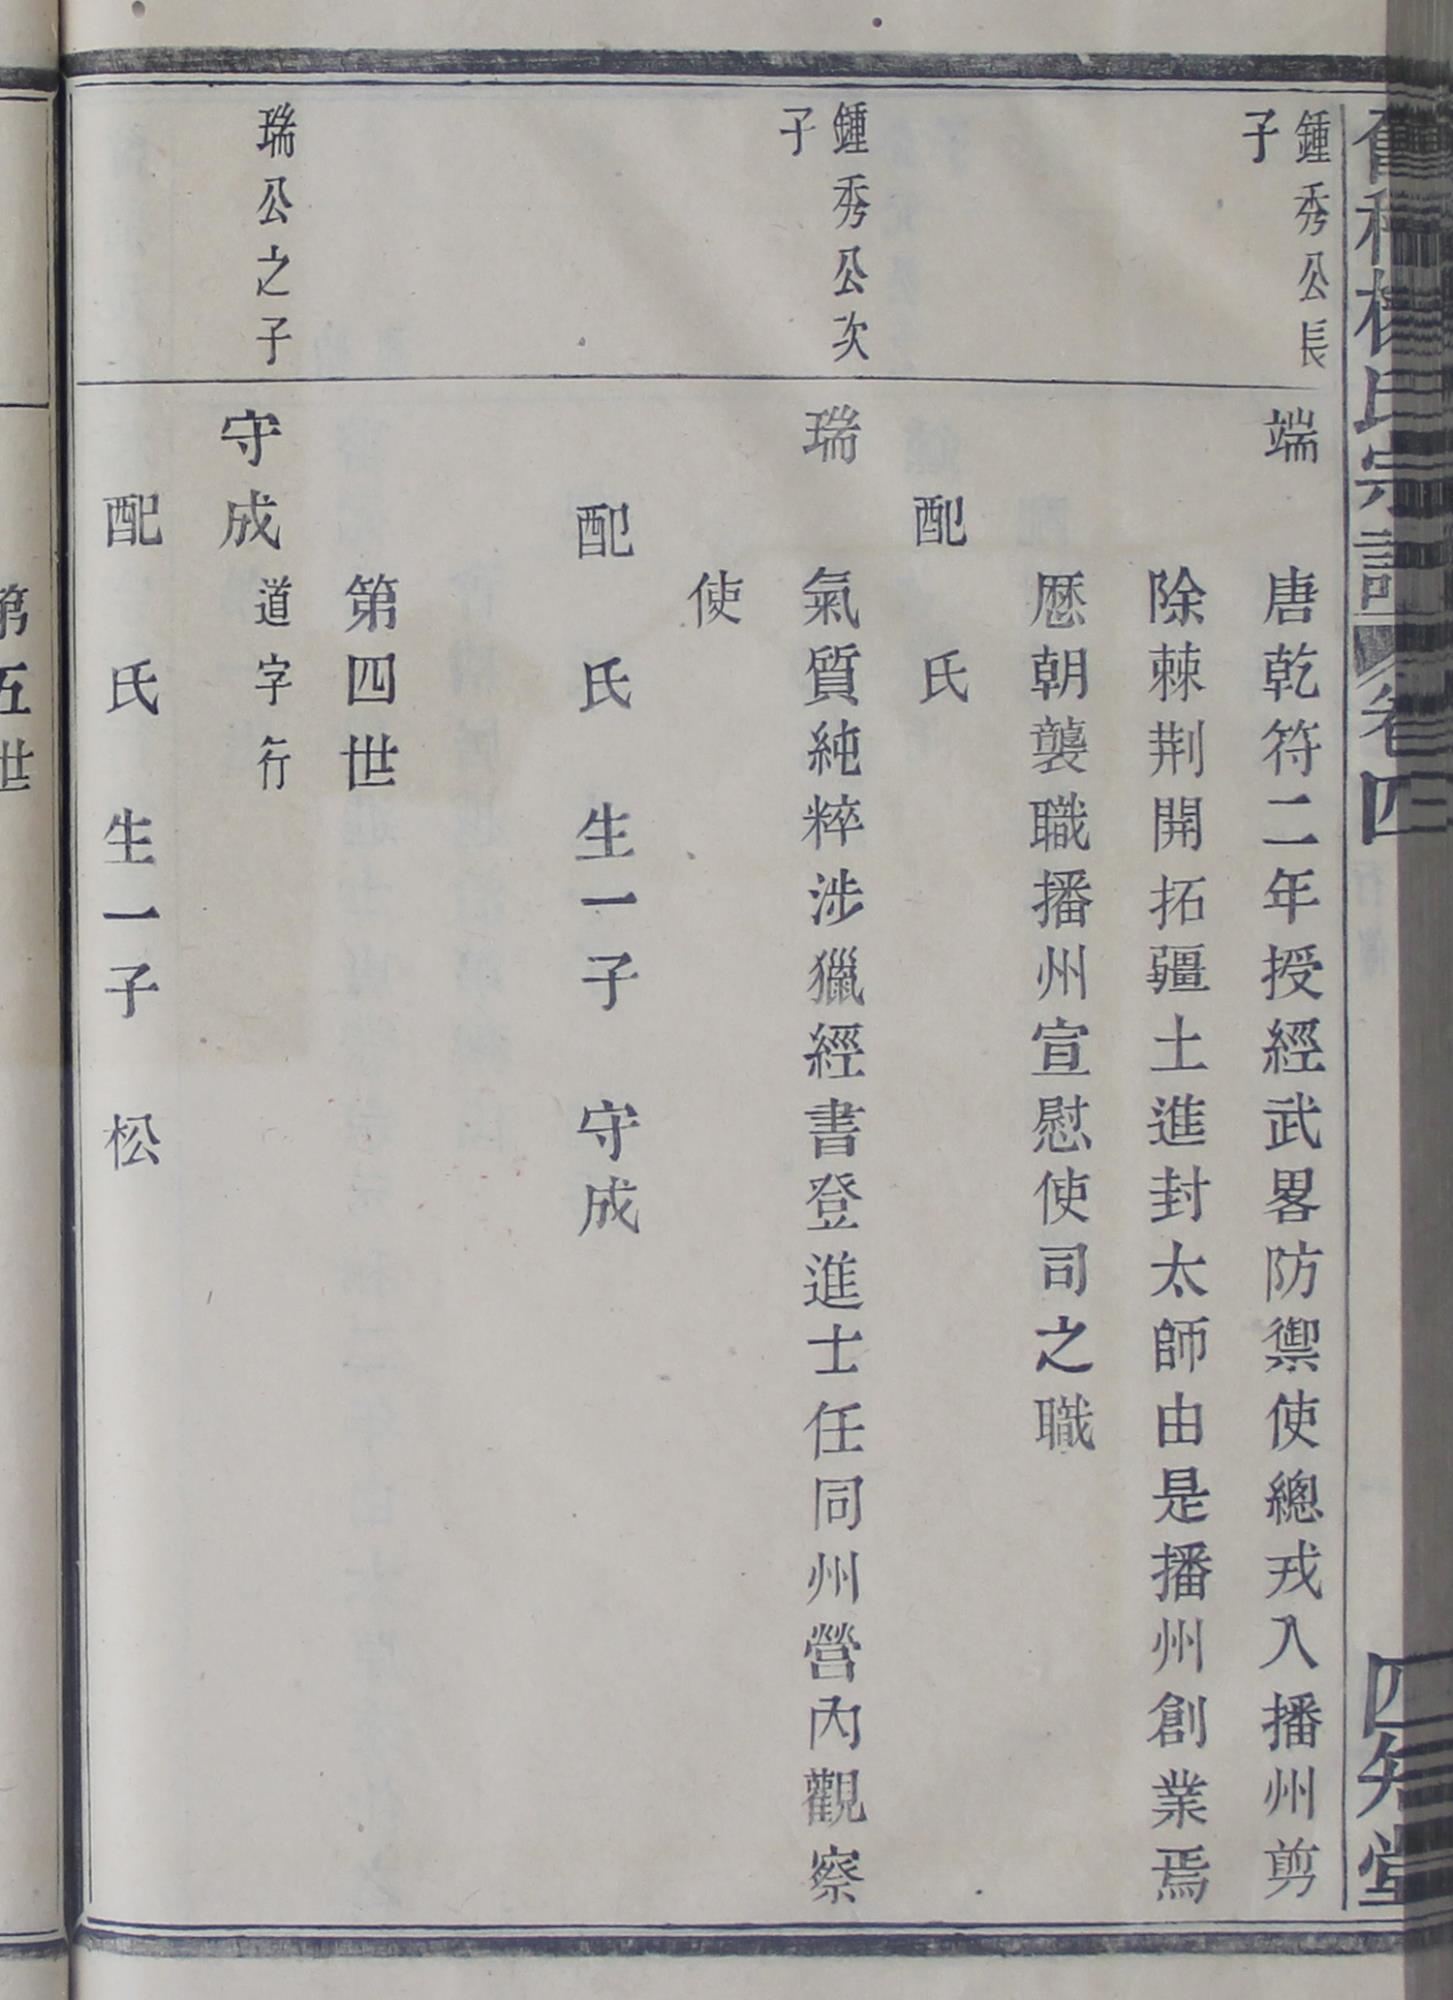 氏宗譜 卷四 四知堂
鍾秀公長
子
端
唐乾符二年授經武畧防禦使總戎入播州剪
除棘荆開拓疆土進封太師由是播州創業焉
歷朝襲職播州宣慰使司之職
配 氏
鍾秀公次
子
瑞
氣質純粹涉獵經書登進士任同州營內觀察
使
配 氏 生一子 守成
第四世
瑞公之子
守成 道字行
配 氏 生一子 松
第五世